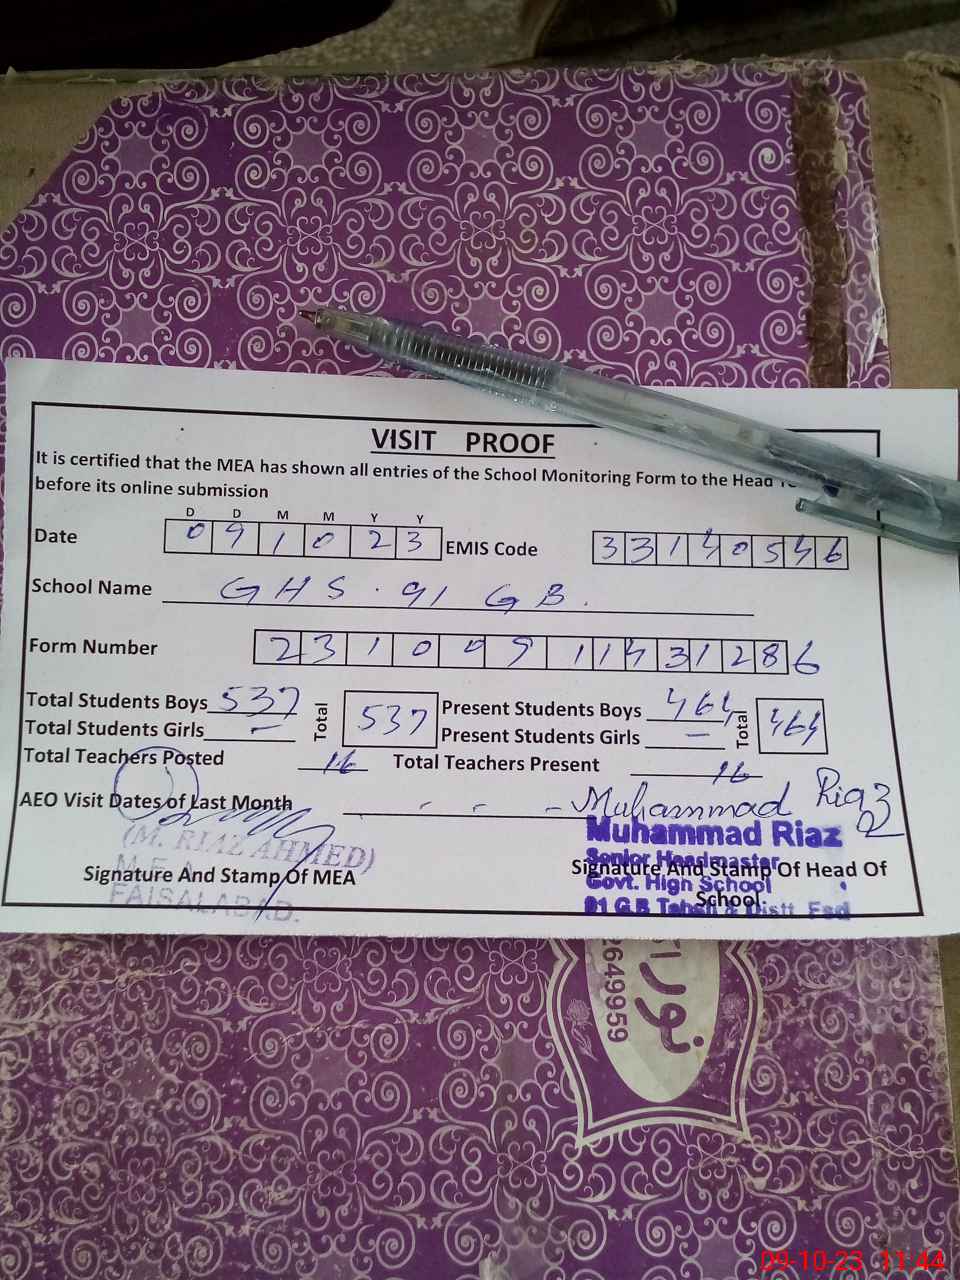 VISIT PROOF
It is certified that the MEA has shown all entries of the School Monitoring Form to the Head
before its online submission
D D M M Y Y
Date 0 9 1 0 2 3 EMIS Code 3 3 1 4 0 5 4 6
School Name GHS. 91 GB.
Form Number 2 3 1 0 0 9 1 1 4 3 1 2 8 6
Total Students Boys 537 Total 537 Present Students Boys 464 Total 464
Total Students Girls - Present Students Girls -
Total Teachers Posted 16 Total Teachers Present 16
AEO Visit Dates of Last Month - - - -
Muhammad Riaz
(M. RIAZ AHMED)
M.E.A
FAISALABAD.
Signature And Stamp Of MEA
Muhammad Riaz
Senior Headmaster
Govt. High School
91 G.B Tehsil & Distt Fsd
Signature And Stamp Of Head Of
School
نور
2649959
09-10-23 11:44